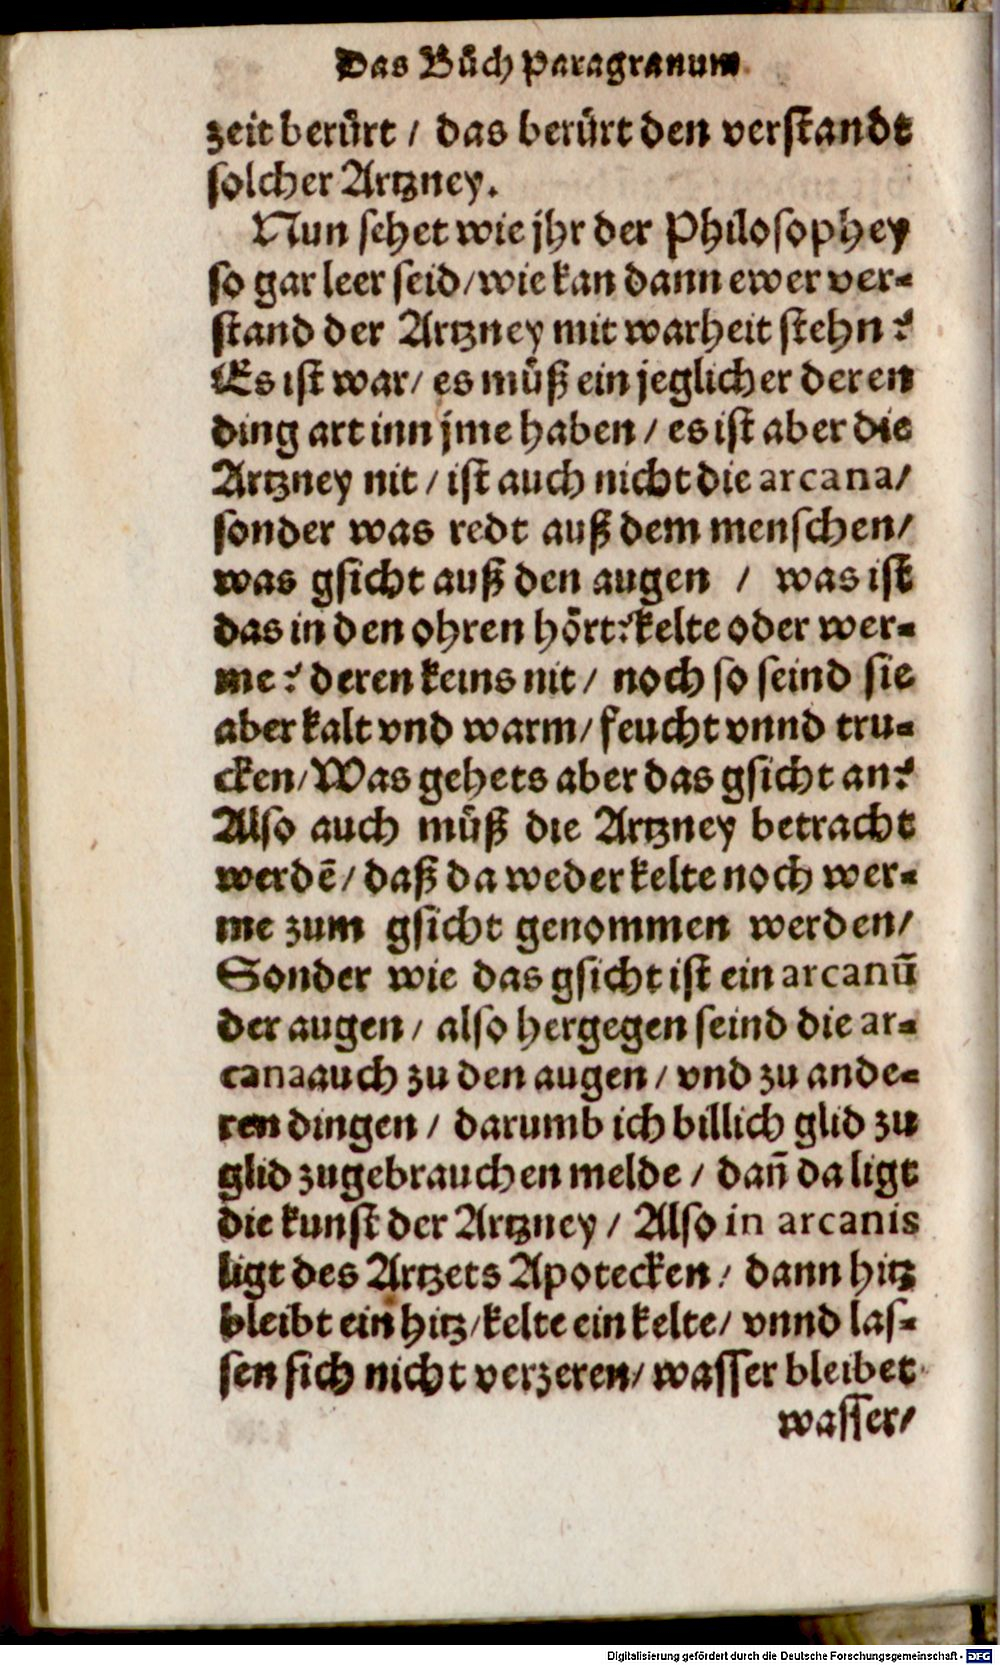 Das Bůch paragranum
zeit berürt / das berürt den verstandt
solcher Artzney.
Nun sehet wie jhr der Philosophey
so gar leer seid / wie kan dann ewer ver-
stand der Artzney mit warheit stehn?
Es ist war / es můß ein jeglicher deren
ding art inn jme haben / es ist aber die
Artzney nit / ist auch nicht die arcana /
sonder was redt auß dem menschen /
was gsicht auß den augen / was ist
das in den ohren hört? kelte oder wer-
me? deren keins nit / noch so seind sie
aber kalt vnd warm / feucht vnnd tru-
cken / Was gehets aber das gsicht an?
Also auch můß die Artzney betracht
werdē / daß da weder kelte noch wer-
me zum gsicht genommen werden /
Sonder wie das gsicht ist ein arcanū
der augen / also hergegen seind die ar-
cana auch zu den augen / vnd zu ande-
ren dingen / darumb ich billich glid zu
glid zugebrauchen melde / dañ da ligt
die kunst der Artzney / Also in arcanis
ligt des Artzets Apotecken / dann hitz
bleibt ein hitz / kelte ein kelte / vnnd las-
sen sich nicht verzeren / wasser bleibet
wasser /
Digitalisierung gefördert durch die Deutsche Forschungsgemeinschaft - DFG